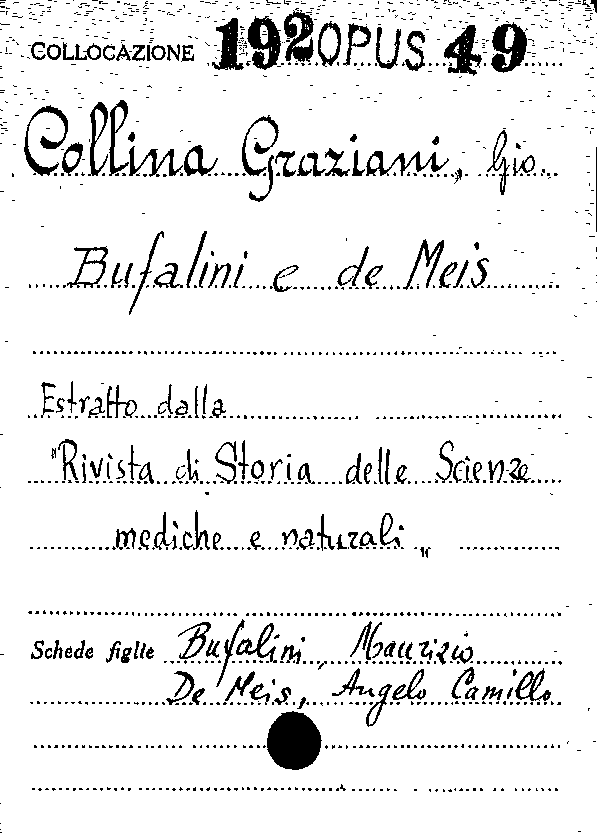 COLLOCAZIONE 192 OPUS 49
Collina Graziani, Gio.
Bufalini e de Meis
Estratto dalla
"Rivista di Storia delle Scienze
mediche e naturali„
Schede figlie Bufalini, Maurizio
De Meis, Angelo Camillo